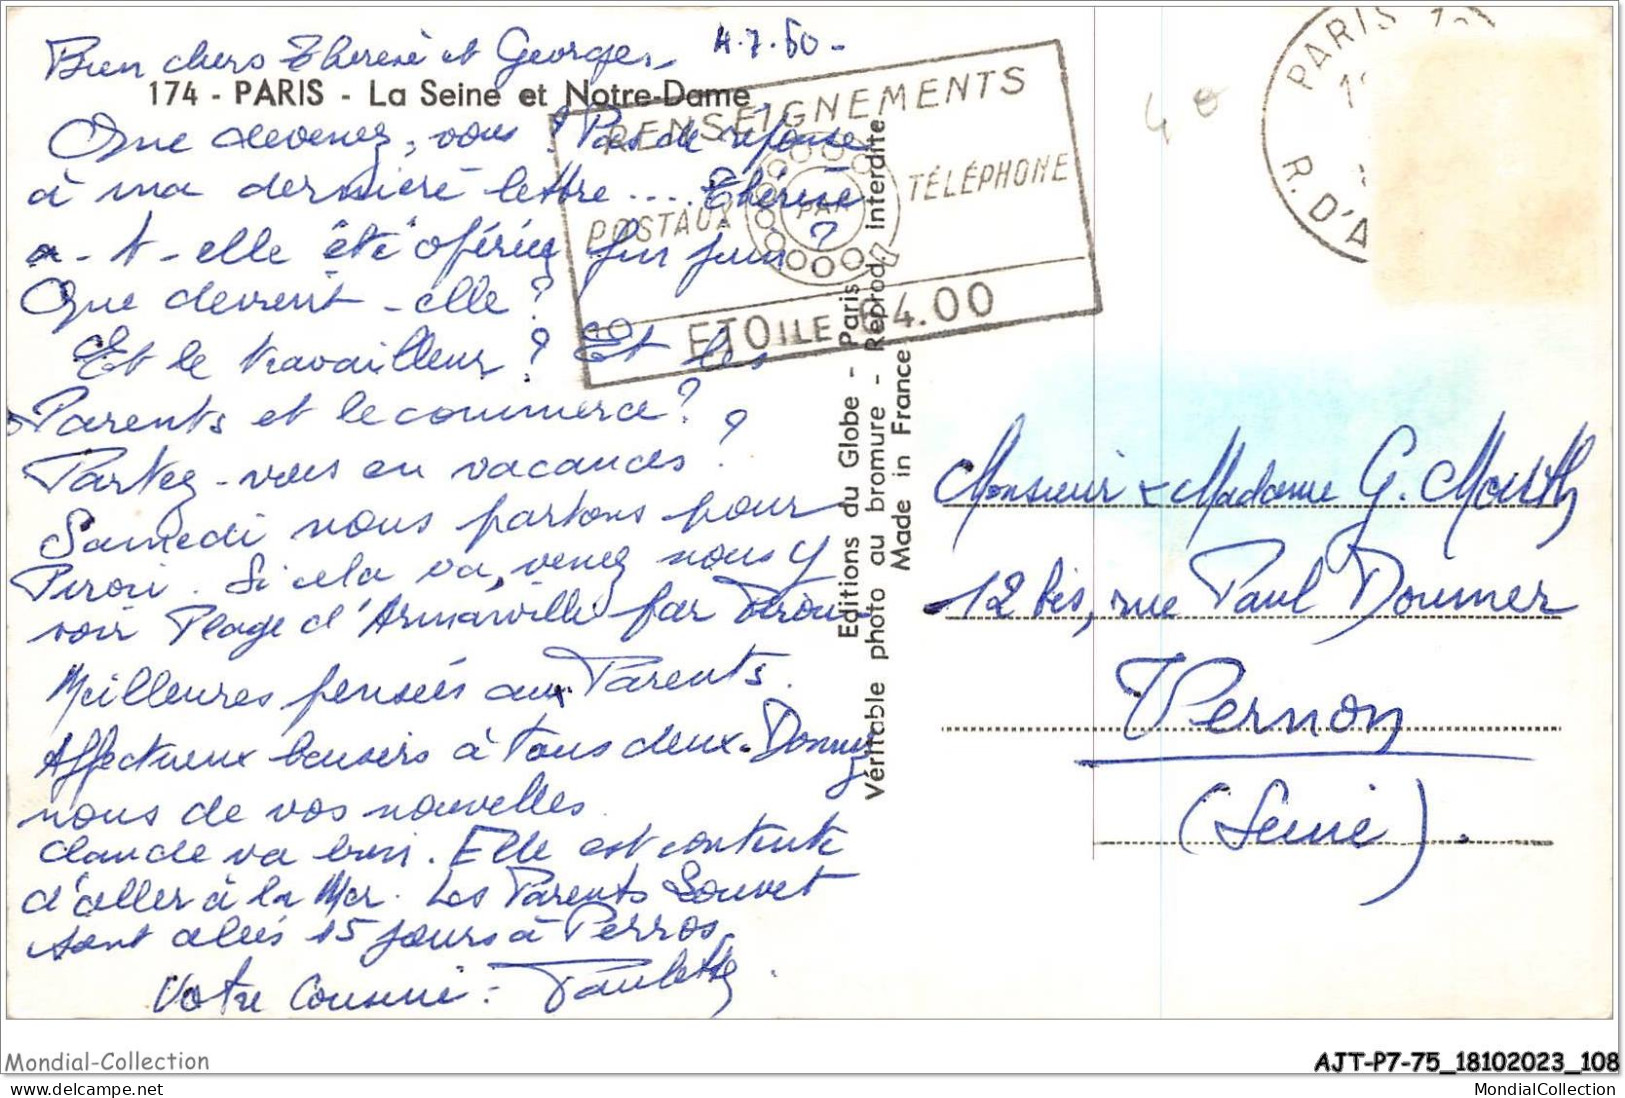 Bien chers Thérèse et Georges, 4.7.60-
174 - PARIS - La Seine et Notre-Dame
Que devenez-vous ? Pas de réponse
à ma dernière lettre.... Thérèse
a-t-elle été opérée fin juin ?
Que devient-elle ?
Et le travailleur ? Et les
Parents et le commerce ?
Partez-vous en vacances ?
Samedi nous partons pour
Si cela va, venez nous y
voir Plage d'Armanville par
Meilleures pensées aux Parents.
Affectueux baisers à tous deux. Donnez
nous de vos nouvelles.
Claude va bien. Elle est contente
d'aller à la Mer. Les Parents Louvet
sont allés 15 jours à Perros.
Votre Cousine : Paulette.
RENSEIGNEMENTS
POSTAUX PAR TÉLÉPHONE
ETOILE 64.00
Editions du Globe - Paris
Véritable photo au bromure - Reprod. interdite
Made in France
PARIS
R. D'A
40
Monsieur & Madame G.
12 bis, rue Paul Doumer
Vernon
(Seine).
Mondial-Collection
AJT-P7-75_18102023_108
MondialCollection